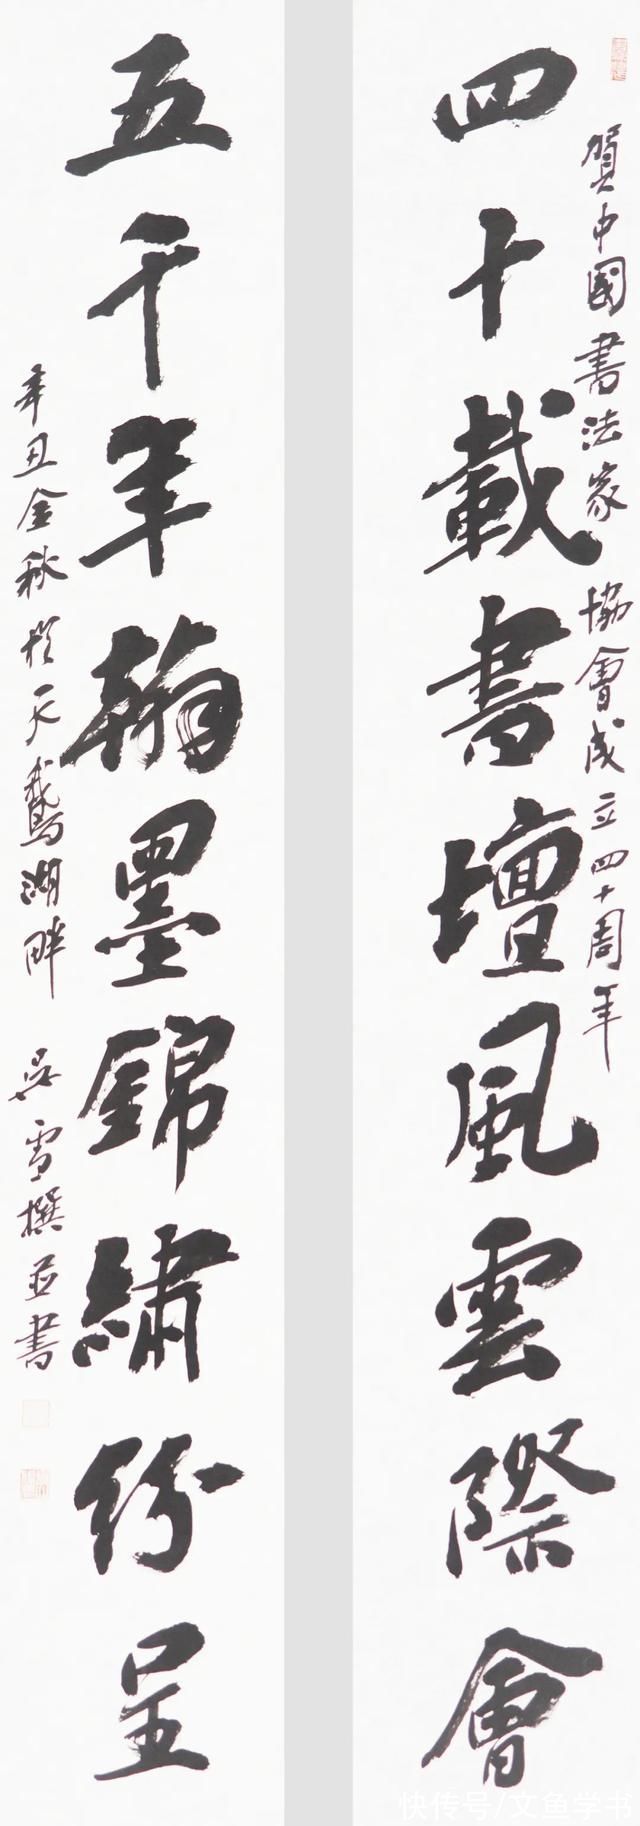 賀中國書法家協會成立四十周年
四十載書壇風雲際會
五千年翰墨錦繡紛呈
辛丑金秋於天鵝湖畔 吳雪撰並書
快传号/文鱼学书